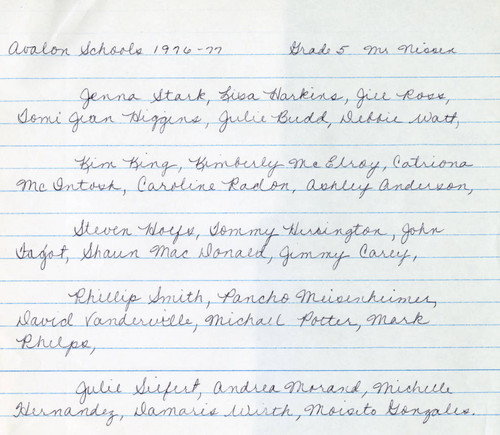 Avalon Schools 1976-77 Grade 5 Mr Nissen
Jenna Stark, Lisa Harkins, Jill Ross,
Tomi Jean Higgins, Julie Budd, Debbie Watt,
Kim King, Kimberly McElroy, Catriona
McIntosh, Caroline Radon, Ashley Anderson,
Steven Hoefs, Tommy Hersington, John
Fagot, Shaun MacDonald, Jimmy Carey,
Phillip Smith, Pancho Meisenheimer,
David Vanderville, Michael Potter, Mark
Phelps,
Julie Siefert, Andrea Morand, Michelle
Hernandez, Damaris Wirth, Moisito Gonzales.